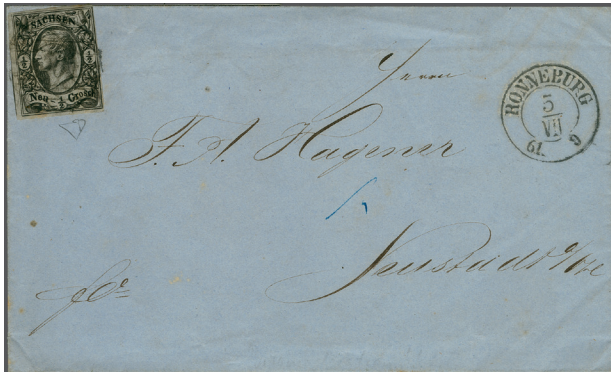 SACHSEN
½ ½
Neu - ½ Grosch
RONNEBURG
5
VII
61. 9
Herrn
F. A. Wagner
Neustadt a/